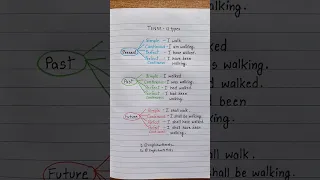 TENSE - 12 types
Present
Simple - I walk.
Continuous - I am walking.
Perfect - I have walked.
Perfect Continuous - I have been walking.
Past
Simple - I walked.
Continuous - I was walking.
Perfect - I had walked.
Perfect Continuous - I had been walking.
Future
Simple - I shall walk.
Continuous - I shall be walking.
Perfect - I shall have walked.
Perfect Continuous - I shall have been walking.
Past
Future
walked.
walking.
walked.
been
walk.
be walking.